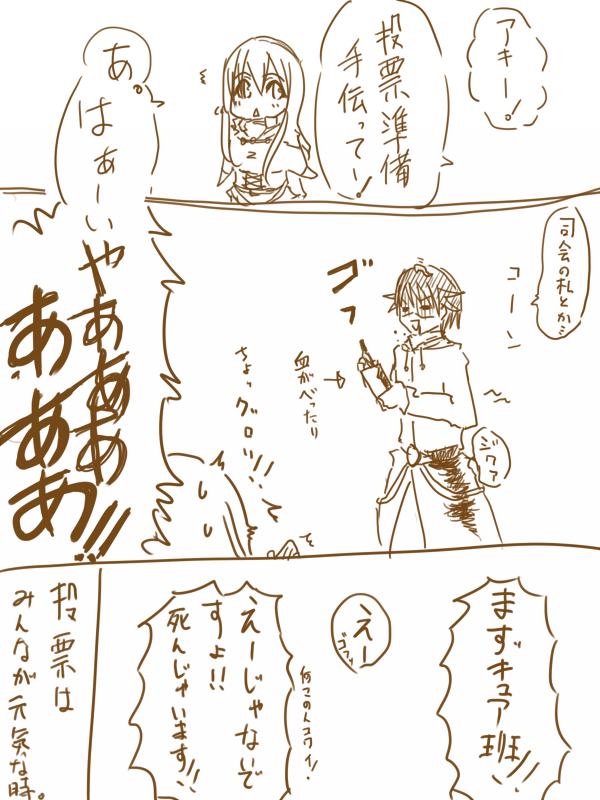 アキー!
投票準備
手伝ってー!
あ。
はぁーい
やぁああぁ
あああぁ!!
司会の札とか…
コーン
ゴフッ
血がべったり
ジワァ
ちょっ
グロッ!!
まずキュア班!!
えー
ゴフッ
えーじゃないで
すょ!!
死んじゃいます!!
何ての人コワイ!
投票は
みんなが元気な時。